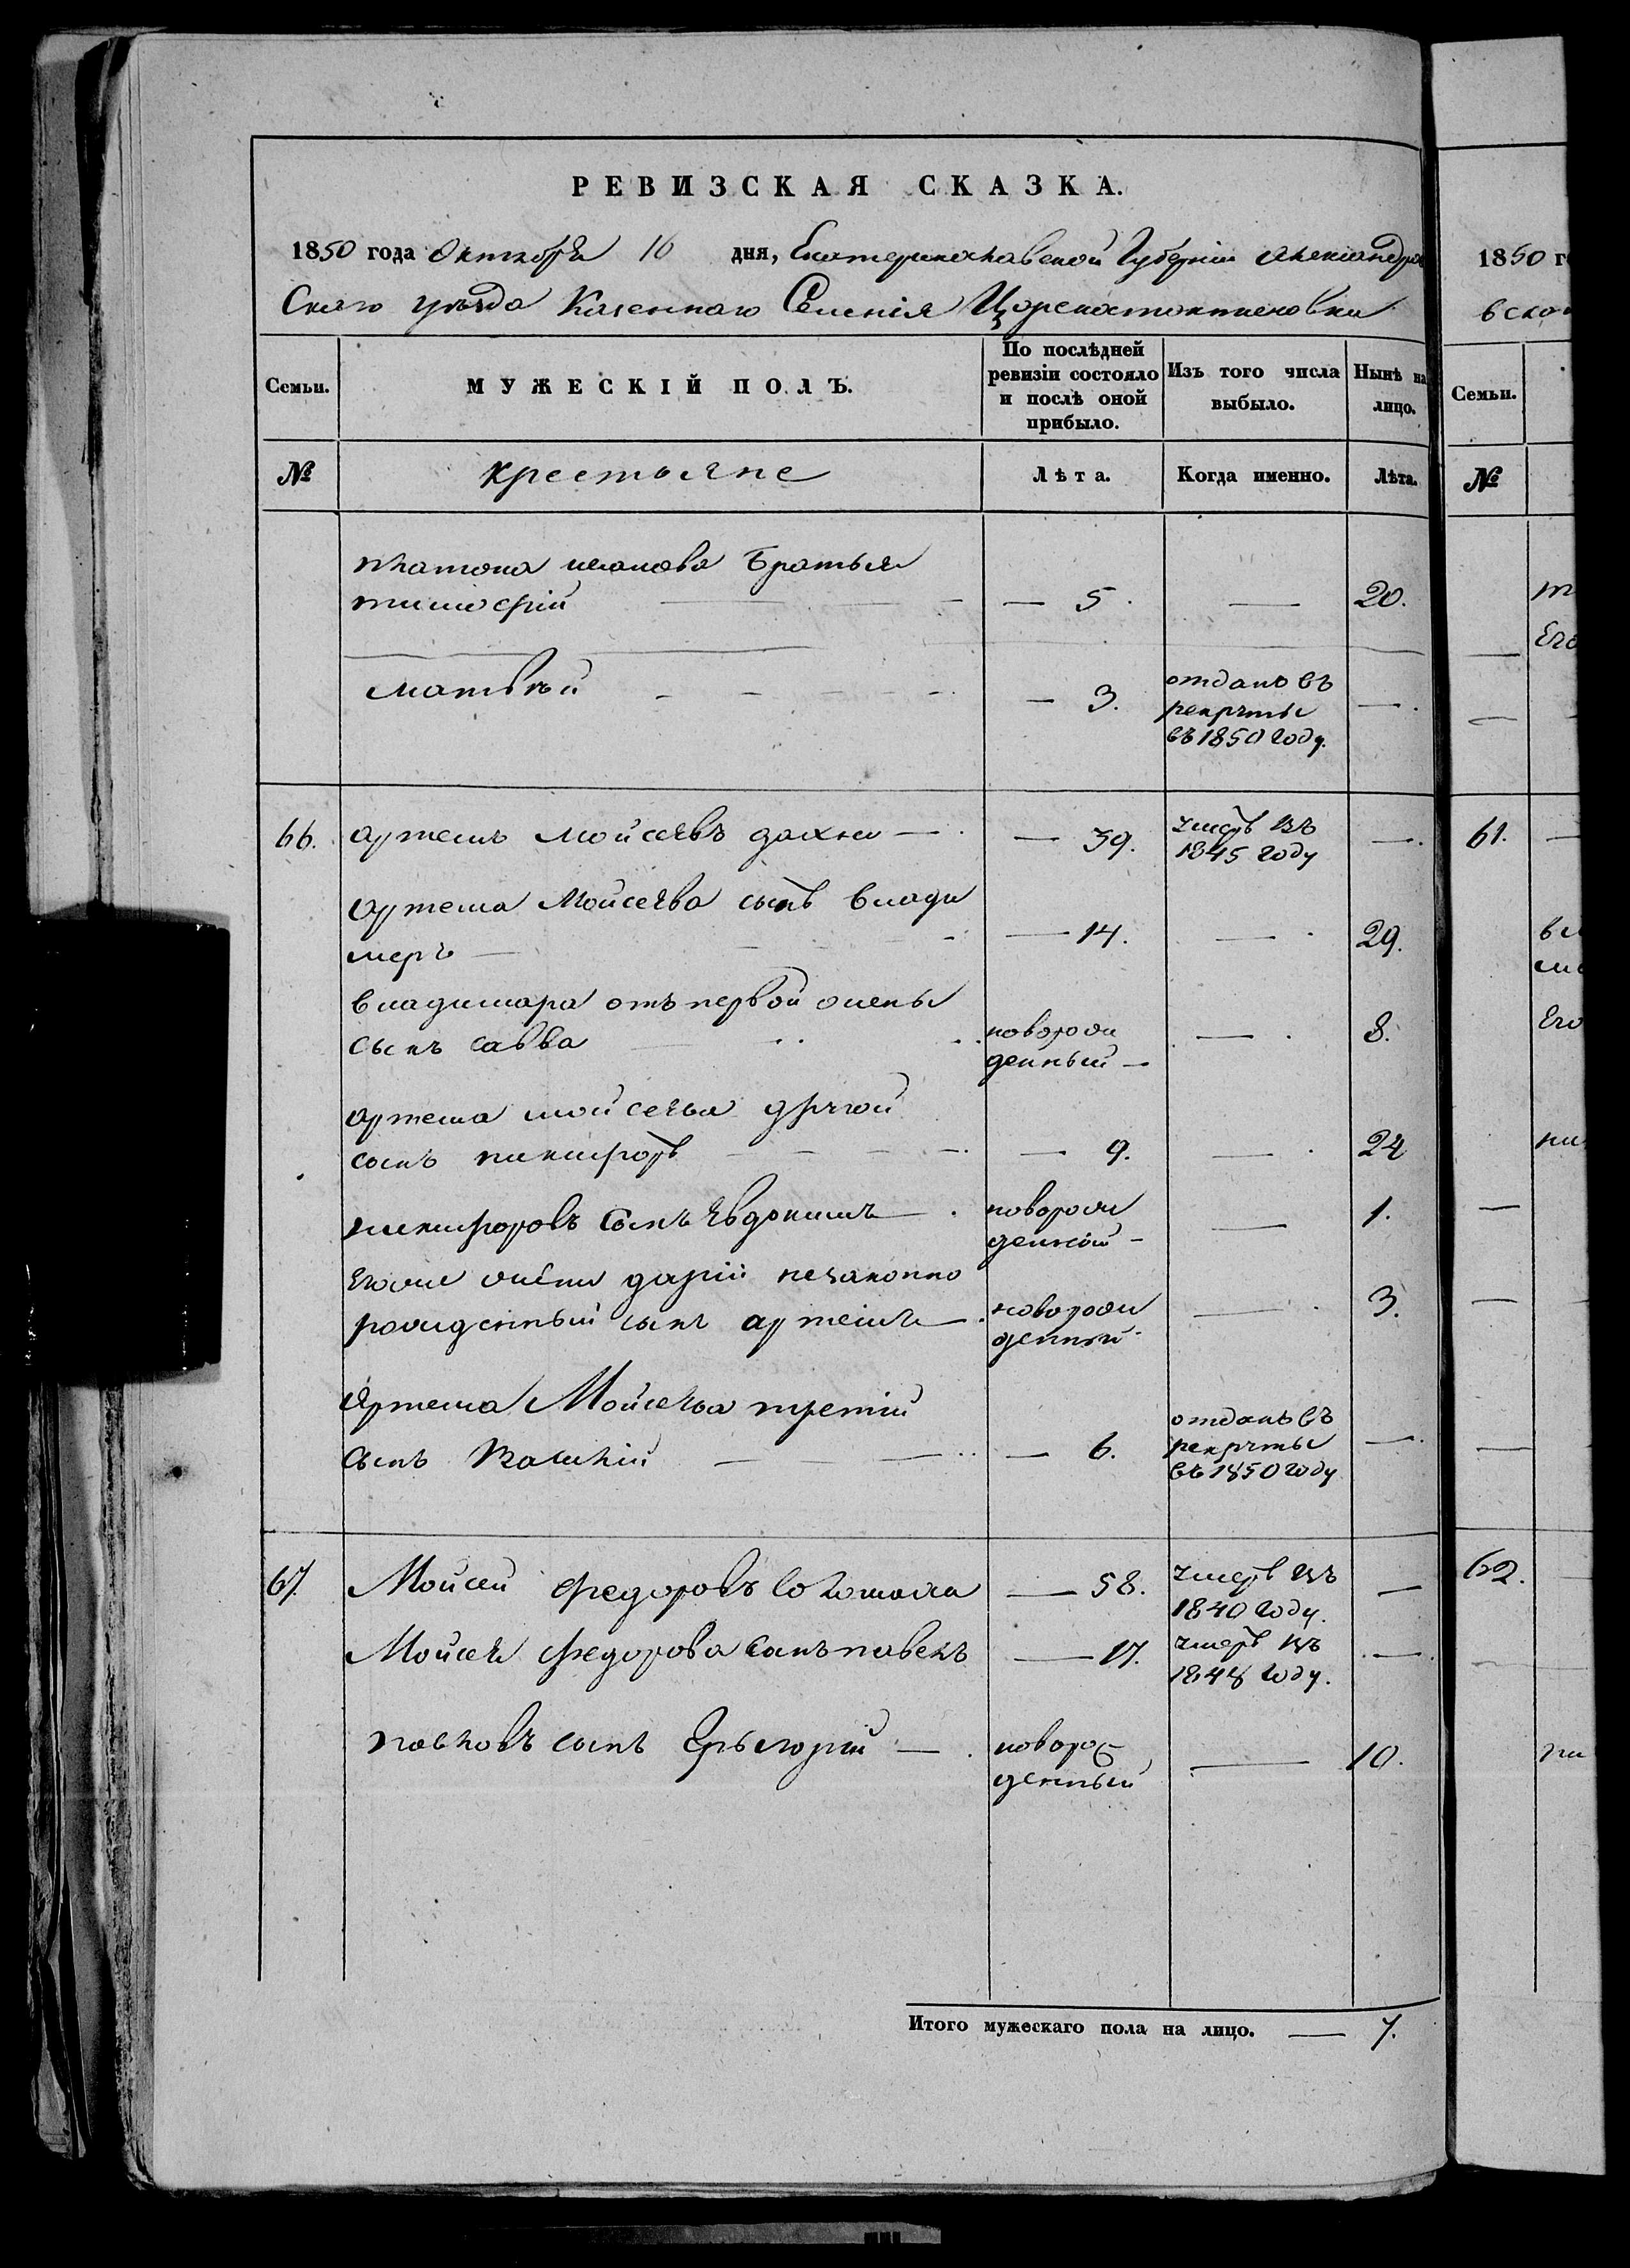 РЕВИЗСКАЯ СКАЗКА.
1850 года Октября 16 дня, Екатеринославской Губерніи Александров
Скаго уѣзда Казеннаго Селенія Цареконстантиновки
Семьи.
МУЖЕСКІЙ ПОЛЪ.
По послѣдней ревизіи состояло и послѣ оной прибыло.
Изъ того числа выбыло.
Нынѣ на лицо.
№ крестьяне Лѣта. Когда именно. Лѣта.
платона иванова братья
тимофій — 5. — 20.
матвѣй — 3. отданъ въ
рекруты —
въ 1850 году.
66. артемъ мойсеевъ — 39. умеръ въ
1845 году —
артема Мойсеева сынъ влади
меръ — 14. — 29.
владимера отъ первой жены
сынъ савва новорож
денный — — 8.
артема мойсеева другой
сынъ никифоръ — 9. — 24
никифоровъ сынъ Евдокимъ — новорож
денной — — 1.
Егоже жены дарій незаконно
рожденный сынъ артемъ — новорож
денный — 3.
Артема Мойсеева третій
сынъ Василій — 6. отданъ въ
рекруты —
въ 1850 году
67. Мойсей федоровъ — 58. умеръ въ
1840 году. —
Мойсея федорова сынъ павелъ — 17. умеръ въ
1848 году. —
павловъ сынъ Грыгорій — новорож
денный — 10.
Итого мужескаго пола на лицо. — 7.
1850 г
вско
Семьи.
№
61.
62.